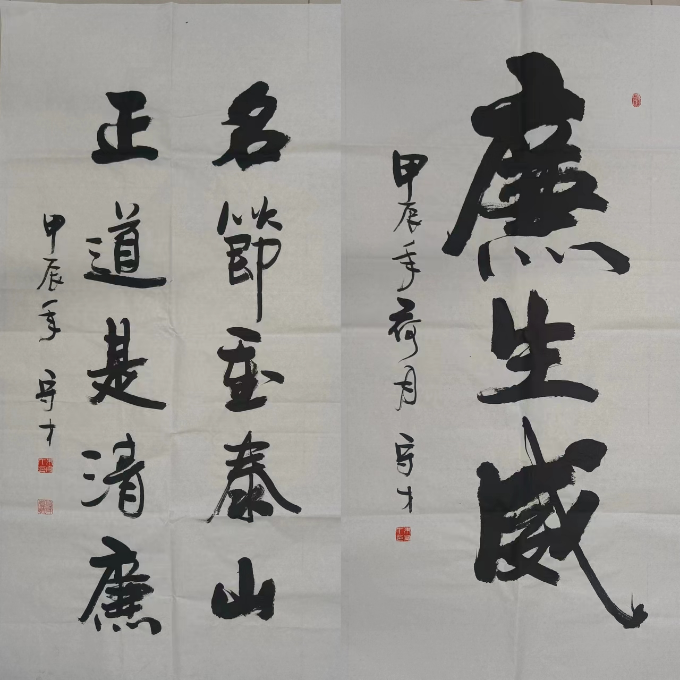 名節重泰山
正道是清廉
甲辰年 守才
廉生威
甲辰年荷月 守才